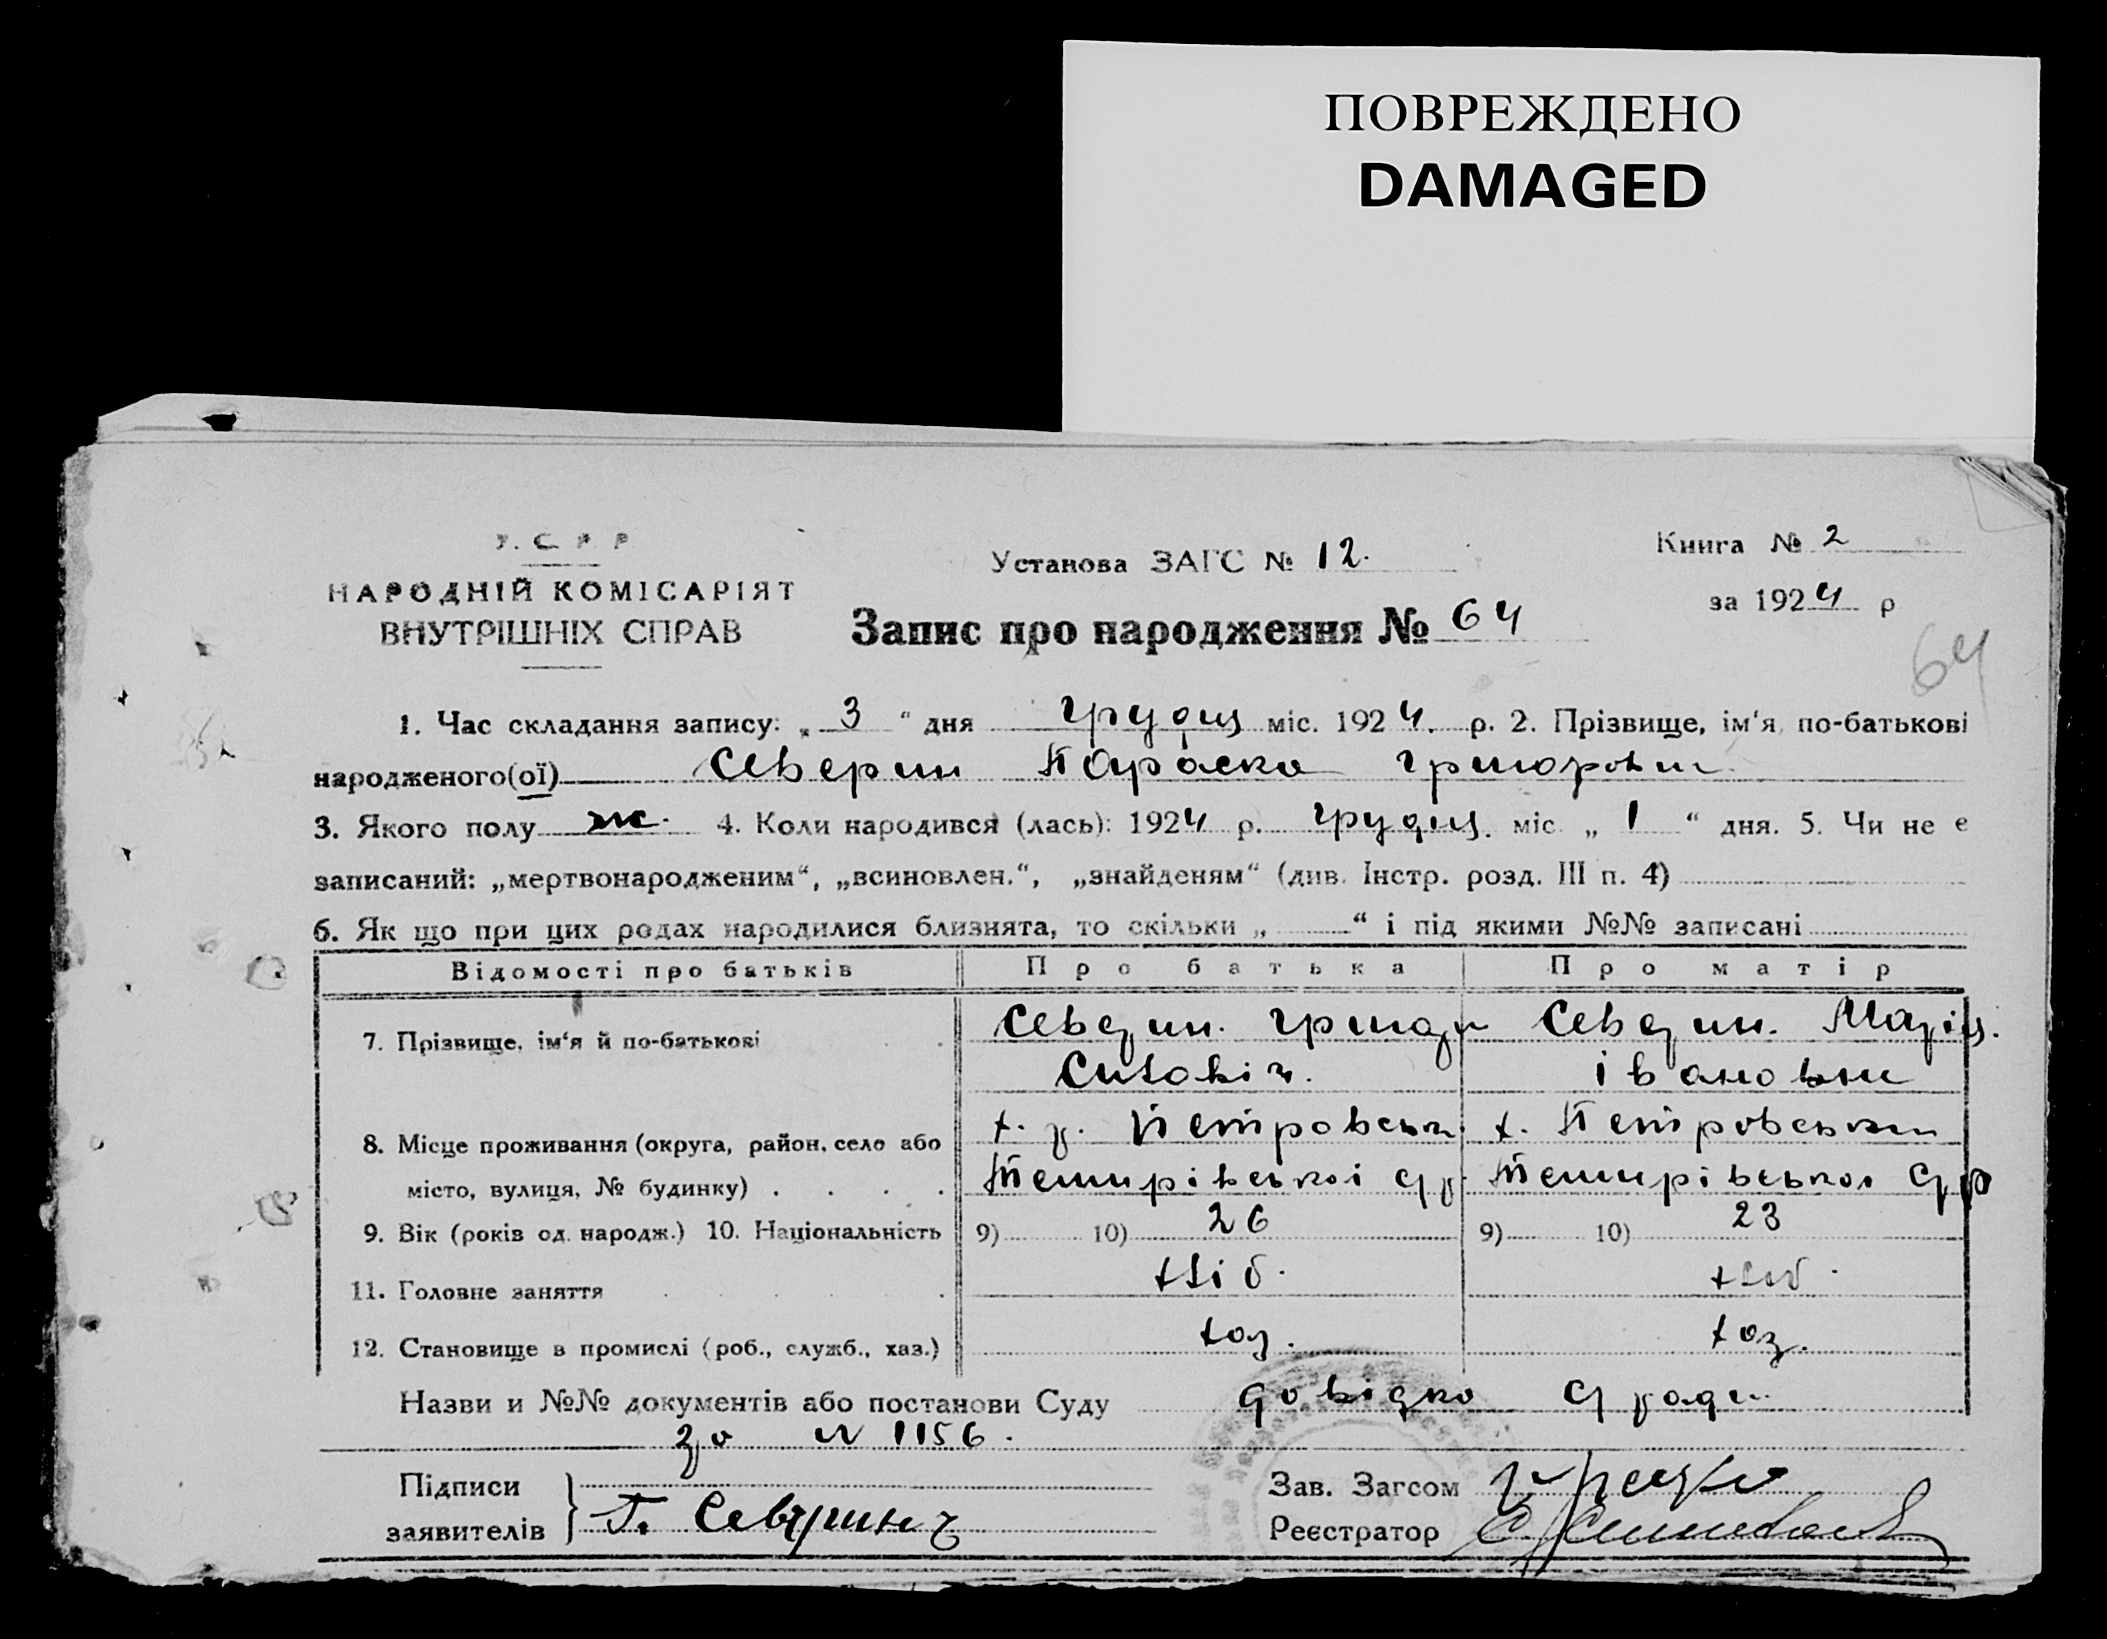 ПОВРЕЖДЕНО
DAMAGED
У. С. Р. Р.
НАРОДНІЙ КОМІСАРІЯТ
ВНУТРІШНІХ СПРАВ
Установа ЗАГС № 12.
Книга № 2
за 1924 р
Запис про народження № 64
64
1. Час складання запису: „ 3 “ дня грудня міс. 1924. р. 2. Прізвище, ім'я, по-батькові
народженого(ої) Северин Параска Григоровн
3. Якого полу ж. 4. Коли народився (лась): 1924 р. грудня. міс. „ 1 “ дня. 5. Чи не є
записаний: „мертвонародженим“, „всиновлен.“, „знайденям“ (див. Інстр. розд. III п. 4)
6. Як що при цих родах народилися близнята, то скільки „ “ і під якими №№ записані
Відомості про батьків Про батька Про матір
7. Прізвище, ім'я й по-батькові Северин. Григор Северин. Марія.
Івановна
8. Місце проживання (округа, район, село або х. Петровськ. х. Петровськ
місто, вулиця, № будинку) . . . . Темирівської с р. Темирівської с р
9. Вік (років од. народж.) 10. Національність 9) 10) 26 9) 10) 23
11. Головне заняття хліб. хліб.
12. Становище в промислі (роб., служб., хаз.) хаз. хаз.
Назви и №№ документів або постанови Суду довідка с ради
за № 1156.
Підписи
заявителів Г. Северинъ
Зав. Загсом
Реєстратор